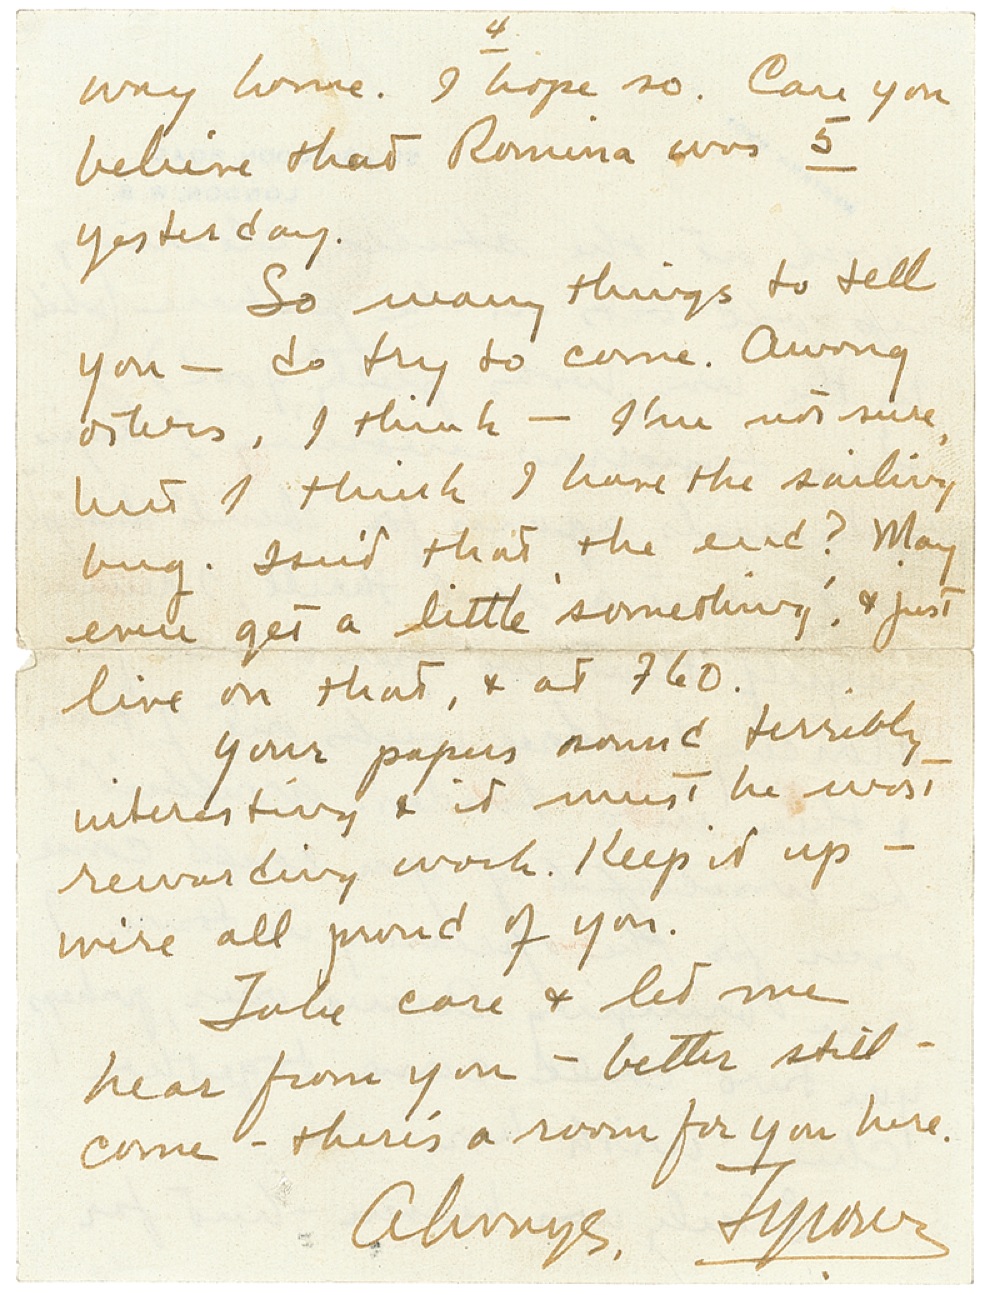 4
way home. I hope so. Can you
believe that Romina was 5
yesterday.
So many things to tell
you — do try to come. Among
others, I think — I'm not sure,
but I think I have the sailing
bug. Isn't that the end? May
even get a little 'something', & just
live on that, & at 760.
Your papers sound terribly
interesting & it must be most
rewarding work. Keep it up —
we're all proud of you.
Take care & let me
hear from you — better still -
come - there's a room for you here.
Always,